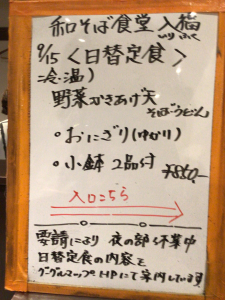 和そば食堂 入福
いりふく
9/15 〈日替定食〉
冷・温)
野菜かきあげ天
そばorうどん
・おにぎり(ゆかり)
・小鉢 2品付 ¥850-
入口こちら
要請により 夜の部は不業中
日替定食の内容を
グーグルマップHPにて案内しています